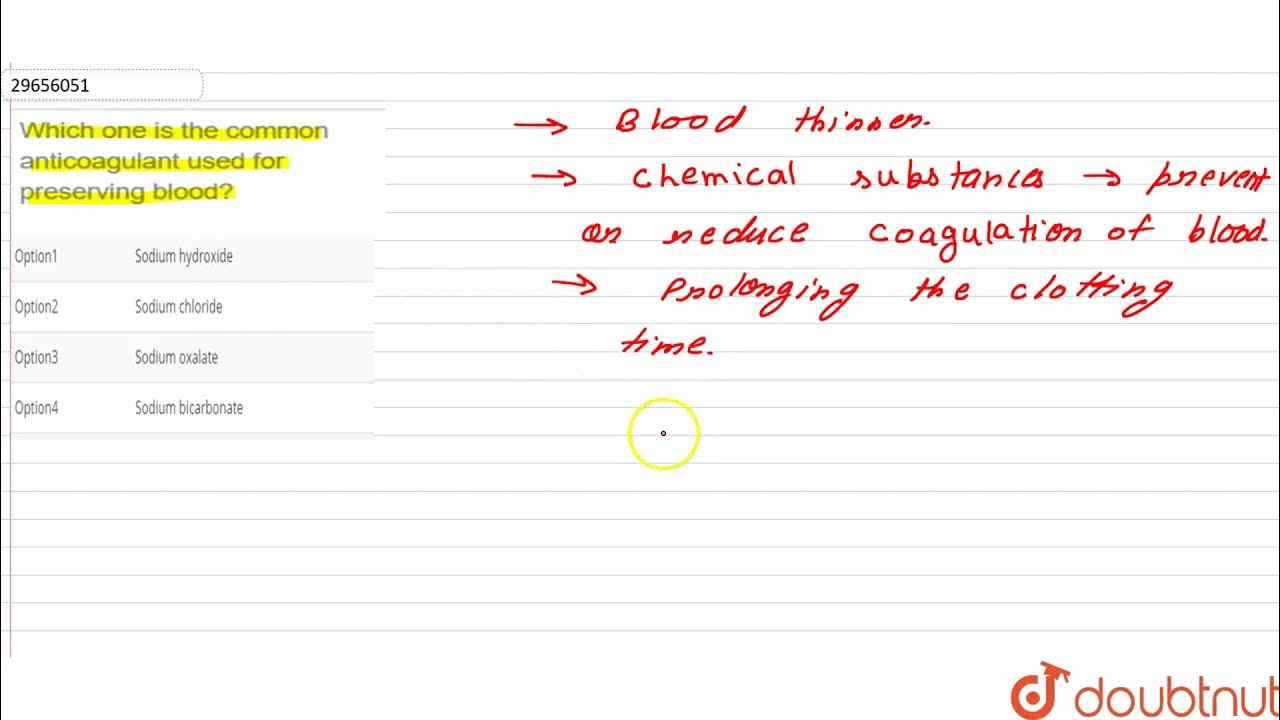 29656051
Which one is the common
anticoagulant used for
preserving blood?
Option1 Sodium hydroxide
Option2 Sodium chloride
Option3 Sodium oxalate
Option4 Sodium bicarbonate
→ Blood thinner.
→ chemical substances → prevent
or reduce coagulation of blood.
→ Prolonging the clotting
time.
doubtnut